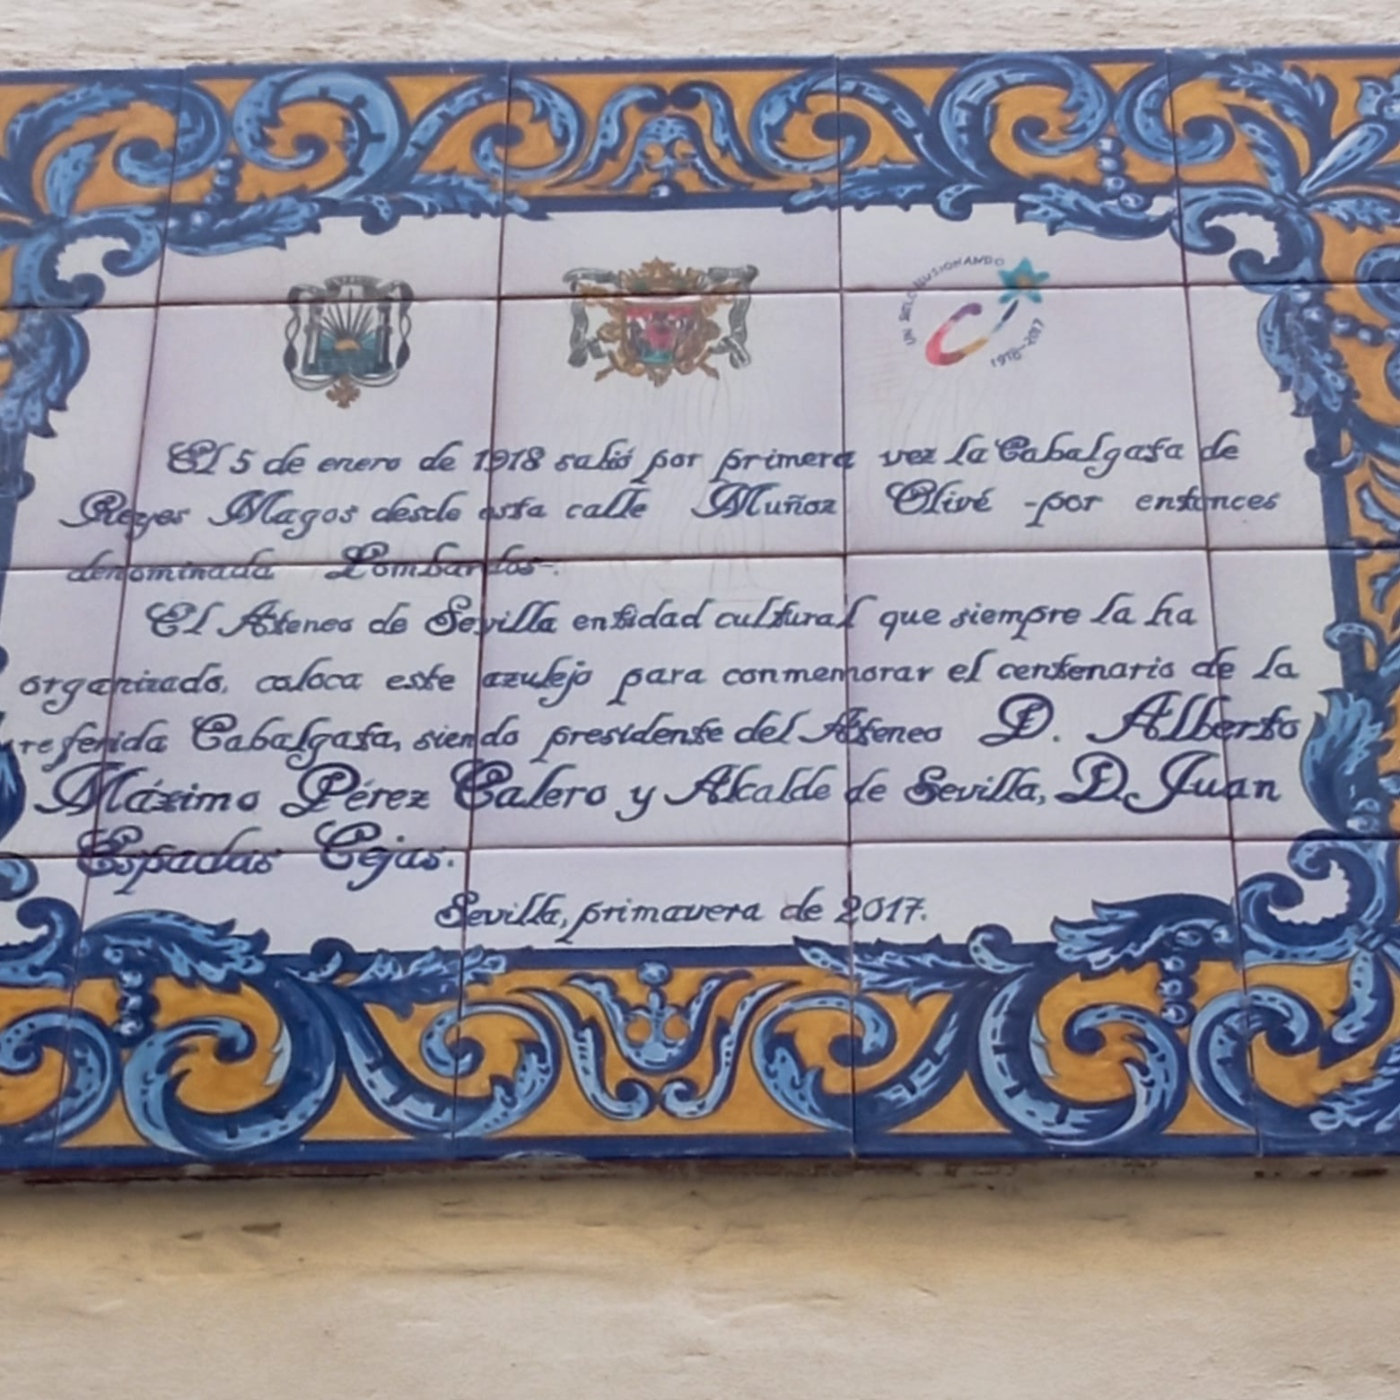 UN SIGLO ILUSIONANDO
1918-2017
El 5 de enero de 1918 salió por primera vez la Cabalgata de
Reyes Magos desde esta calle Muñoz Olivé -por entonces
denominada Lombardos-.
El Ateneo de Sevilla entidad cultural que siempre la ha
organizado, coloca este azulejo para conmemorar el centenario de la
referida Cabalgata, siendo presidente del Ateneo D. Alberto
Máximo Pérez Calero y Alcalde de Sevilla, D. Juan
Espadas Cejas.
Sevilla, primavera de 2017.